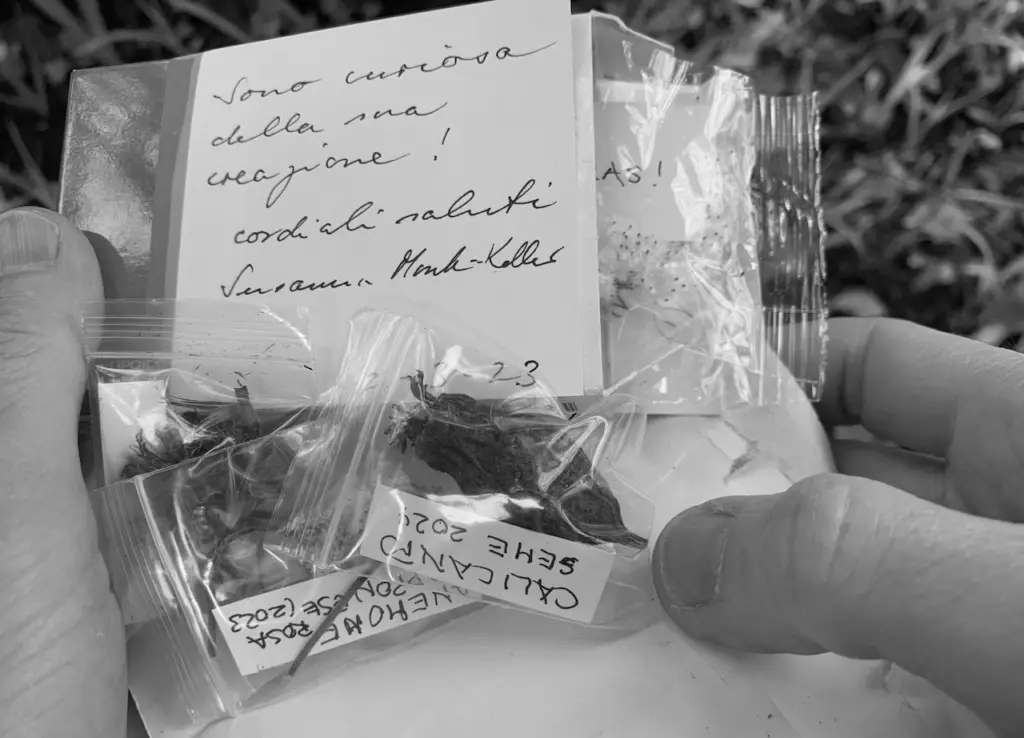 Sono curiosa
della sua
creazione !
cordiali saluti
Susanna
AS!
23
CALICANTO
SEME 202
NEMONE ROSA
ESE (2023